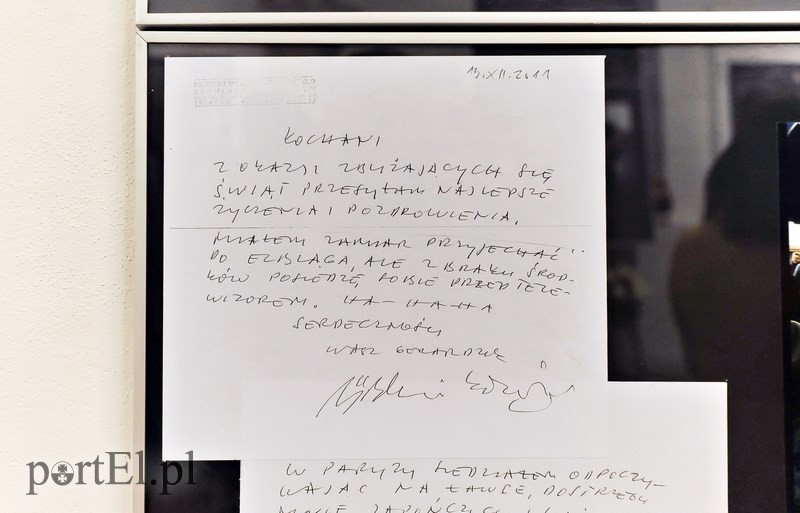 13.XII.2011
KOCHANI
Z OKAZJI ZBLIŻAJĄCYCH SIĘ
ŚWIĄT PRZESYŁAM NAJLEPSZE
ŻYCZENIA I POZDROWIENIA.
MIAŁEM ZAMIAR PRZYJECHAĆ
DO ELBLĄGA, ALE Z BRAKU ŚROD-
KÓW POSIEDZĘ SOBIE PRZED TELE-
WIZOREM. HA-HA-HA
SERDECZNOŚCI
WASZ GERARD
W PARYŻU SIEDZIAŁEM ODPOCZY-
WAJĄC NA ŁAWCE, DOSTRZEGŁ
MNIE JAPOŃCZYK
portEl.pl